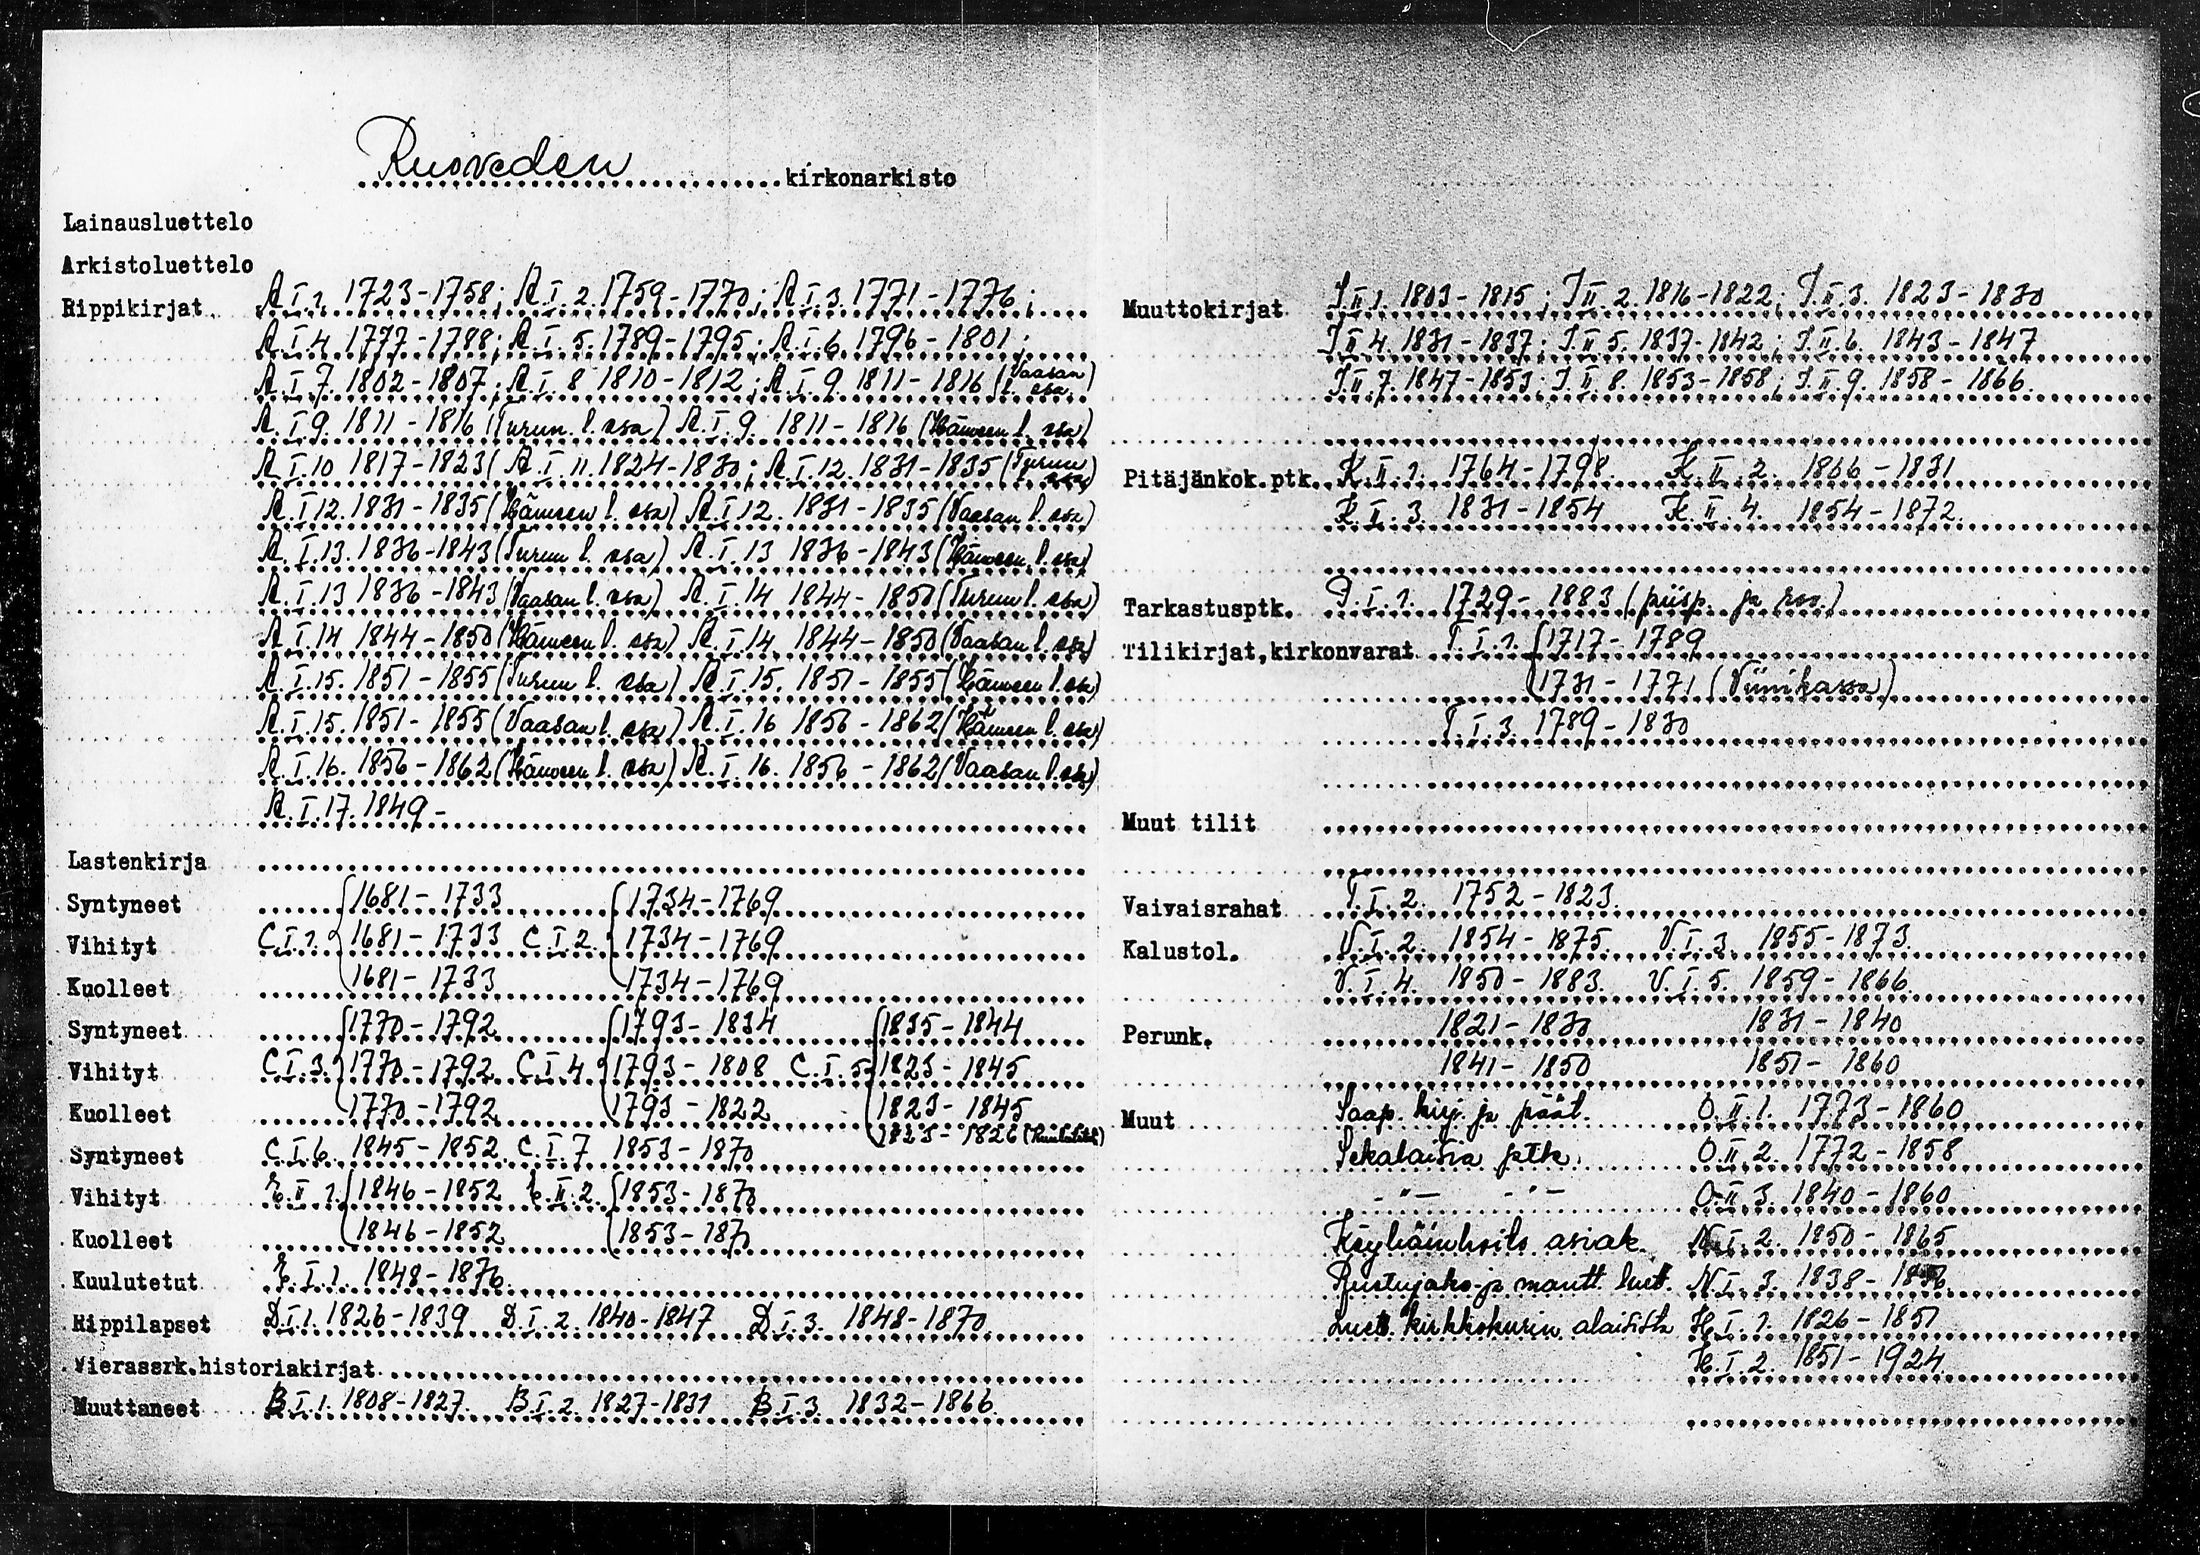 Ruoveden kirkonarkisto
Lainausluettelo
Arkistoluettelo
Rippikirjat. A.I.1. 1723-1758; A.I.2. 1759-1770; A.I.3. 1771-1776;
A.I.4 1777-1788; A.I.5. 1789-1795; A.I.6. 1796-1801;
A.I.7. 1802-1807; A.I.8 1810-1812; A.I.9. 1811-1816 (Vaasan l. osa)
A.I.9. 1811-1816 (Turun l. osa) A.I.9. 1811-1816 (Hämeen l. osa)
A.I.10 1817-1823( A.I.11. 1824-1830; A.I.12. 1831-1835 (Turun l. osa)
A.I.12. 1831-1835 (Hämeen l. osa) A.I.12. 1831-1835 (Vaasan l. osa)
A.I.13. 1836-1843 (Turun l. osa) A.I.13 1836-1843 (Hämeen l. osa)
A.I.13 1836-1843 (Vaasan l. osa) A.I.14 1844-1850 (Turun l. osa)
A.I.14 1844-1850 (Hämeen l. osa) A.I.14. 1844-1850 (Vaasan l. osa)
A.I.15. 1851-1855 (Turun l. osa) A.I.15. 1851-1855 (Hämeen l. osa)
A.I.15. 1851-1855 (Vaasan l. osa) A.I.16 1856-1862 (Hämeen l. osa)
A.I.16. 1856-1862 (Hämeen l. osa) A.I.16. 1856-1862 (Vaasan l. osa)
A.I.17. 1849-
Lastenkirja
Syntyneet 1681-1733 1734-1769
Vihityt C.I.1. 1681-1733 C.I.2. 1734-1769
Kuolleet 1681-1733 1734-1769
Syntyneet 1770-1792 1793-1834 1835-1844
Vihityt C.I.3. 1770-1792 C.I.4. 1793-1808 C.I.5. 1823-1845
Kuolleet 1770-1792 1793-1822 1823-1845
1823-1826
Syntyneet C.I.6. 1845-1852. C.I.7 1853-1870
Vihityt E.II.1. 1846-1852 E.II.2. 1853-1870
Kuolleet 1846-1852 1853-187
Kuulutetut E.I.1. 1848-1876.
Rippilapset D.I.1. 1826-1839 D.I.2. 1840-1847 D.I.3. 1848-1870
Vierassrk.historiakirjat
Muuttaneet B.I.1. 1808-1827. B.I.2. 1827-1831 B.I.3. 1832-1866.
Muuttokirjat J.II.1. 1803-1815; J.II.2. 1816-1822; J.II.3. 1823-1830
J.II.4. 1831-1837; J.II.5. 1837-1842; J.II.6. 1843-1847
J.II.7. 1847-1853; J.II.8. 1853-1858; J.II.9. 1858-1866.
Pitäjänkok.ptk. K.II.1. 1764-1798. K.II.2. 1806-1831
K.II.3. 1831-1854 K.II.4. 1854-1872.
Tarkastusptk. P.I.1. 1729-1883 (piisp. ja rov.)
Tilikirjat,kirkonvarat T.I.1. 1717-1789
1731-1771 (Viinikassa)
T.I.3. 1789-1830
Muut tilit
Vaivaisrahat T.I.2. 1752-1823.
Kalustol. V.I.2. 1854-1875. V.I.3. 1855-1873.
V.I.4. 1850-1883. V.I.5. 1859-1866.
Perunk. 1821-1830 1831-1840
1841-1850 1851-1860
Muut Saap. kirj. ja päät. O.II.1. 1773-1860
Sekalaisia ptk. O.II.2. 1772-1858
-"- -"- O.II.3. 1840-1860
Köyhäinhoito. asiak. N.I.2. 1850-1865
Ruotujako-ja mantt. luett. N.I.3. 1838-
Luett. kirkkokurin alaisista H.I.1. 1826-1851
H.I.2. 1851-1924.